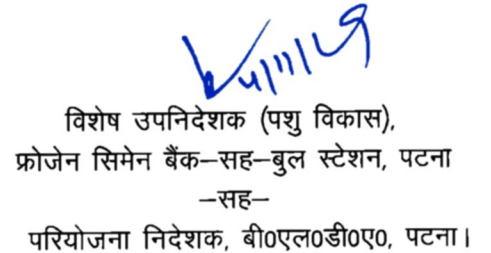 विशेष उपनिदेशक (पशु विकास),
फ्रोजेन सिमेन बैंक–सह–बुल स्टेशन, पटना
–सह–
परियोजना निदेशक, बी0एल0डी0ए0, पटना।